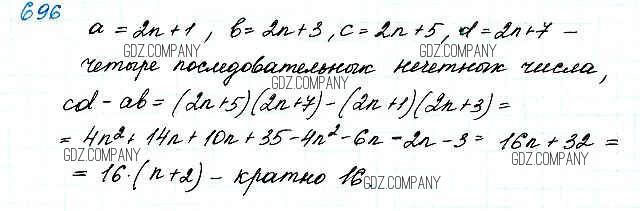 696
a = 2n+1, b = 2n+3, c = 2n+5, d = 2n+7 –
GDZ.COMPANY GDZ.COMPANY GDZ.COMPANY
четыре последовательных нечетных числа,
GDZ.COMPANY
cd - ab = (2n+5)(2n+7) - (2n+1)(2n+3) =
= 4n² + 14n + 10n + 35 - 4n² - 6n - 2n - 3 = 16n + 32 =
GDZ.COMPANY GDZ.COMPANY GDZ.COMPANY
= 16·(n+2) – кратно 16
GDZ.COMPANY